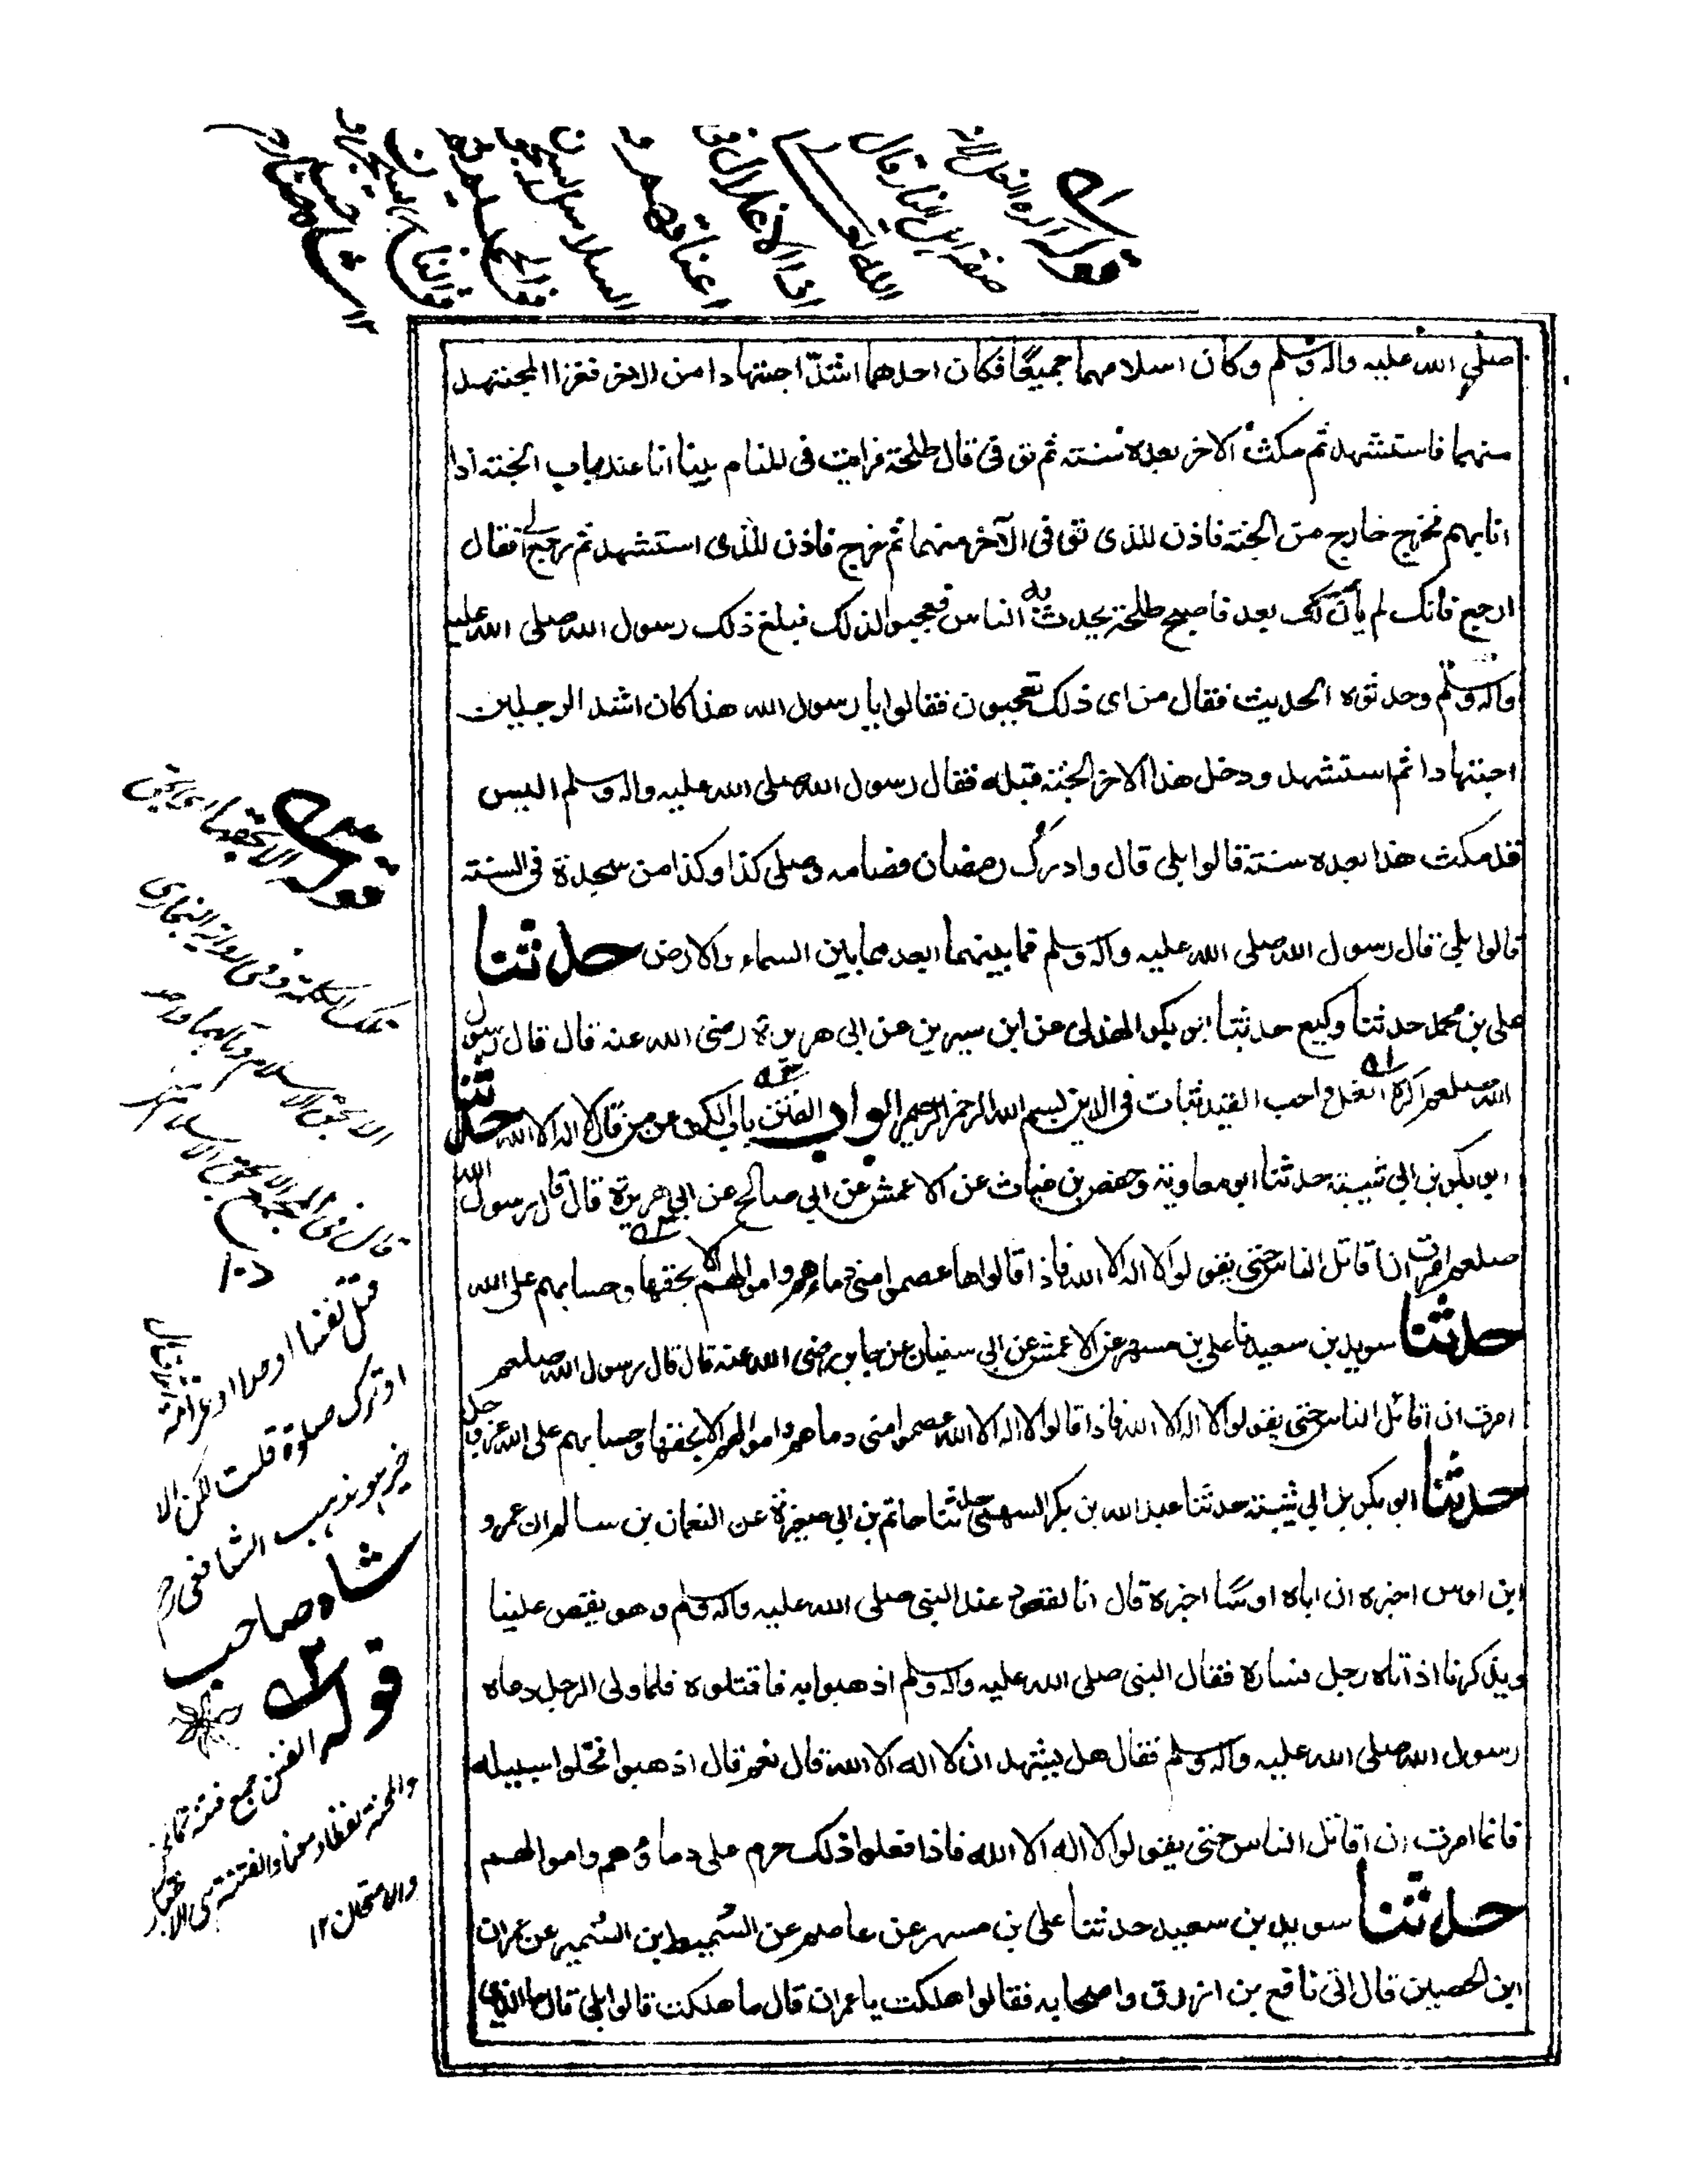 صلى الله عليه واله وسلم وكان اسلامهما جميعًا فكان احدهما اشدّ اجتهادا من الاخر فغزا المجتهد
منهما فاستشهد ثم مكث الاخر بعده سنته ثم توفى قال طلحة فرايت فى المنام بينا انا عند باب الجنة اذا
انا بهم فخرج خارج من الجنة فاذن للذى توفى الآخر منهما ثم خرج فاذن للذى استشهد ثم رجع الى فقال
ارجع فانك لم يأن لك بعد فاصبح طلحة يحدث به الناس فعجبوا لذلك فبلغ ذلك رسول الله صلى الله عليه
واله وسلم وحدثوه الحديث فقال من اى ذلك تعجبون فقالوا يا رسول الله هذا كان اشد الرجلين
اجتهادا ثم استشهد ودخل هذا الاخر الجنة قبله فقال رسول الله صلى الله عليه واله وسلم اليس
قد مكث هذا بعده سنة قالوا بلى قال وادرك رمضان فصامه وصلى كذا وكذا من سجدة فى السنة
قالوا بلى قال رسول الله صلى الله عليه واله وسلم فما بينهما ابعد مما بين السماء والارض حدثنا
على بن محمد حدثنا وكيع حدثنا ابو بكر الهذلى عن ابن سيرين عن ابى هريرة رضى الله عنه قال قال رسول
الله صلعم اكره الغل واحب القيد ثبات فى الدين بسم الله الرحمن الرحيم ابواب الفتن باب الكف عن من قال لا اله الا الله حدثنا
ابو بكر بن ابى شيبة حدثنا ابو معاوية وحفص بن غياث عن الاعمش عن ابى صالح عن ابى هريرة قال قال رسول الله
صلعم امرت ان اقاتل الناس حتى يقولوا لا اله الا الله فاذا قالوها عصموا منى دماءهم واموالهم الا بحقها وحسابهم على الله
حدثنا سويد بن سعيد نا على بن مسهر عن الاعمش عن ابى سفيان عن جابر رضى الله عنه قال قال رسول الله صلعم
امرت ان اقاتل الناس حتى يقولوا لا اله الا الله فاذا قالوا لا اله الا الله عصموا منى دماهم واموالهم الا بحقها وحسابهم على الله عز وجل
حدثنا ابو بكر بن ابى شيبة حدثنا عبد الله بن بكر السهمى حدثنا حاتم بن ابى صغيرة عن النعمان بن سالم ان عمرو
ابن اوس اخبره ان اباه اوسًا اخبره قال انا لقعود عند النبى صلى الله عليه واله وسلم وهو يقص علينا
ويذكرنا اذ اتاه رجل فساره فقال النبى صلى الله عليه واله وسلم اذهبوا به فاقتلوه فلما ولى الرجل دعاه
رسول الله صلى الله عليه واله وسلم فقال هل يشهد ان لا اله الا الله قال نعم قال اذهبوا فخلوا سبيله
فانما امرت ان اقاتل الناس حتى يقولوا لا اله الا الله فاذا فعلوا ذلك حرم على دماؤهم واموالهم
حدثنا سويد بن سعيد حدثنا على بن مسهر عن عاصم عن السُميط ابن السُمير عن عمران
ابن الحصين قال اتى نافع بن ازرق واصحابه فقالوا هلكت يا عمران قال ما هلكت قالوا بلى قال ما الذى
قوله
صفة اهل النار قال
الله تعالى
اذ الاغلال فى
اعناقهم و
السلاسل
قوله الا بحقها اى بحق
تلك الكلمة وفى الرواية البخارى
الا بحق الاسلام ومآلهما واحد
قال فى المجمع الا بحق الاسلام من
قتل نفسا او حدا او غرامة
او ترك صلوة قلت لكن الا
خير هو مذهب الشافعى رح
شاه صاحب
قوله الفتن جمع فتنة كالمحن
والمحنة لفظا ومعنا والفتنة هى الاختبار
والامتحان ١٢